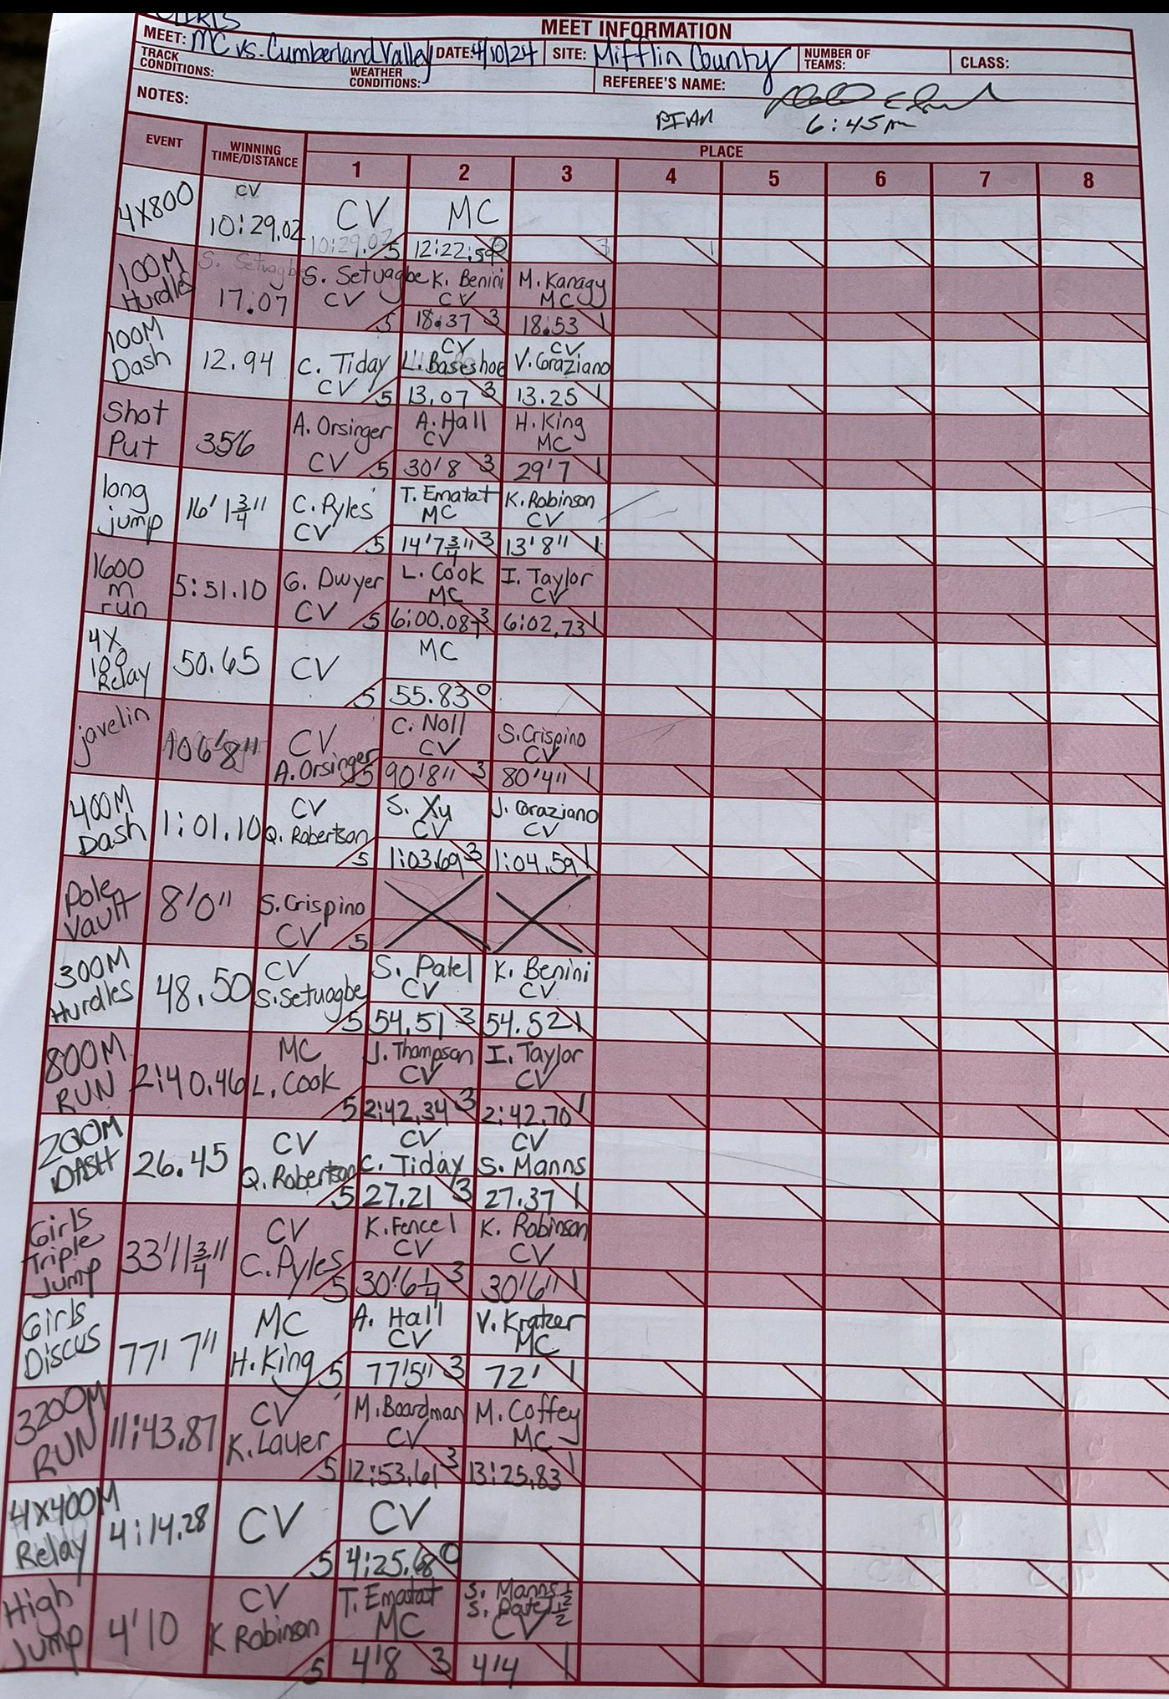 GIRLS
MEET INFORMATION
MEET: MC vs. Cumberland Valley DATE: 4/10/24 SITE: Mifflin County NUMBER OF TEAMS: CLASS:
TRACK CONDITIONS: WEATHER CONDITIONS: REFEREE'S NAME:
NOTES: 6:45pm
EVENT WINNING TIME/DISTANCE PLACE
1 2 3 4 5 6 7 8
4X800 CV 10:29.02 CV MC
10:29.02 5 12:22.59 0 3 1
100M Hurdles S. Setuagbe 17.07 S. Setuagbe CV K. Benini CV M. Kanagy MC
5 18.37 3 18.53 1
100M Dash 12.94 C. Tiday CV CV L. Baseshore CV V. Graziano
5 13.07 3 13.25 1
Shot Put 35'6 A. Orsinger CV A. Hall CV H. King MC
5 30'8 3 29'7 1
long jump 16' 1 3/4" C. Pyles CV T. Ematat MC K. Robinson CV
5 14'7 3/4" 3 13'8" 1
1600 m run 5:51.10 G. Dwyer CV L. Cook MC I. Taylor CV
5 6:00.08 3 6:02.73 1
4X 100 Relay 50.65 CV MC
5 55.83 0
javelin 106'8" CV A. Orsinger C. Noll CV S. Crispino CV
5 90'8" 3 80'4" 1
400M Dash 1:01.10 CV Q. Robertson S. Xu CV J. Graziano CV
5 1:03.69 3 1:04.59 1
Pole Vault 8'0" S. Crispino CV
5
300M Hurdles 48.50 CV S. Setuagbe S. Patel CV K. Benini CV
5 54.51 3 54.52 1
800M RUN 2:40.46 MC L. Cook J. Thompson CV I. Taylor CV
5 2:42.34 3 2:42.70 1
200M DASH 26.45 CV Q. Robertson CV C. Tiday CV S. Manns
5 27.21 3 27.37 1
Girls Triple Jump 33'11 3/4" CV C. Pyles K. Fencel CV K. Robinson CV
5 30'6 1/4 3 30'6" 1
Girls Discus 77' 7" MC H. King A. Hall CV V. Kratzer MC
5 77'5" 3 72' 1
3200M RUN 11:43.87 CV K. Lauer M. Boardman CV M. Coffey MC
5 12:53.61 3 13:25.83 1
4X400M Relay 4:14.28 CV CV
5 4:25.68 0
High Jump 4'10 CV K Robinson T. Ematat MC S. Manns 1/2 S. Patel 1/2 CV
5 4'8 3 4'4 1